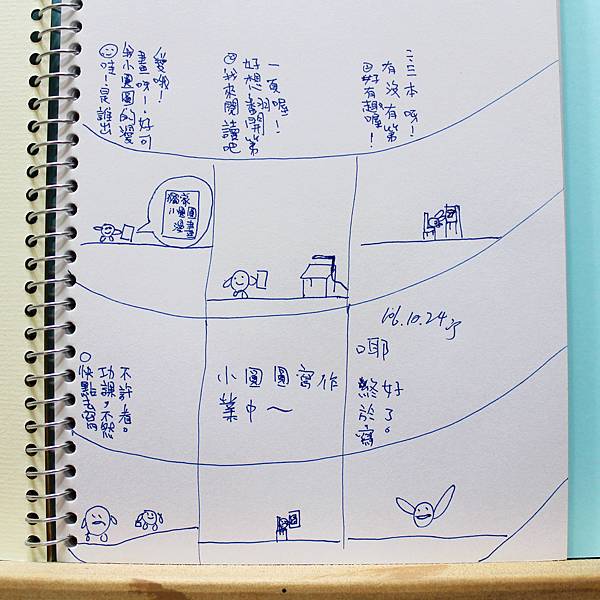 哇！是誰出
我小圓圓的漫
畫呀！好可
愛哦！
我來閱讀吧
好想翻開第
一頁喔！
好有趣喔！
有沒有第
二三本呀！
獨家
小圓圓
漫畫
快點去寫
功課，不然
不許看。
小圓圓寫作
業中～
106.10.24
耶
終於寫
好了。